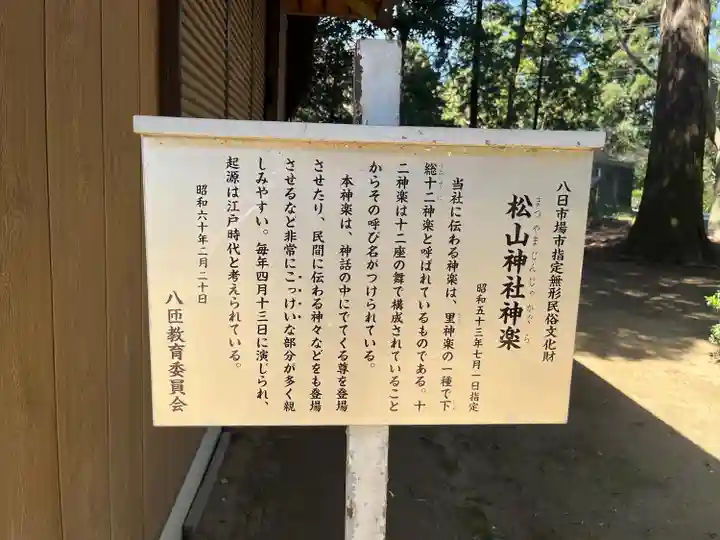 八日市場市指定無形民俗文化財
松山神社神楽
まつやまじんじゃかぐら
昭和五十三年七月一日指定
当社に伝わる神楽は、里神楽の一種で下
総十二神楽と呼ばれているものである。十
二神楽は十二座の舞で構成されていること
からその呼び名がつけられている。
本神楽は、神話の中にでてくる尊を登場
させたり、民間に伝わる神々などをも登場
させるなど非常にこっけいな部分が多く親
しみやすい。毎年四月十三日に演じられ、
起源は江戸時代と考えられている。
昭和六十年二月二十日
八匝教育委員会